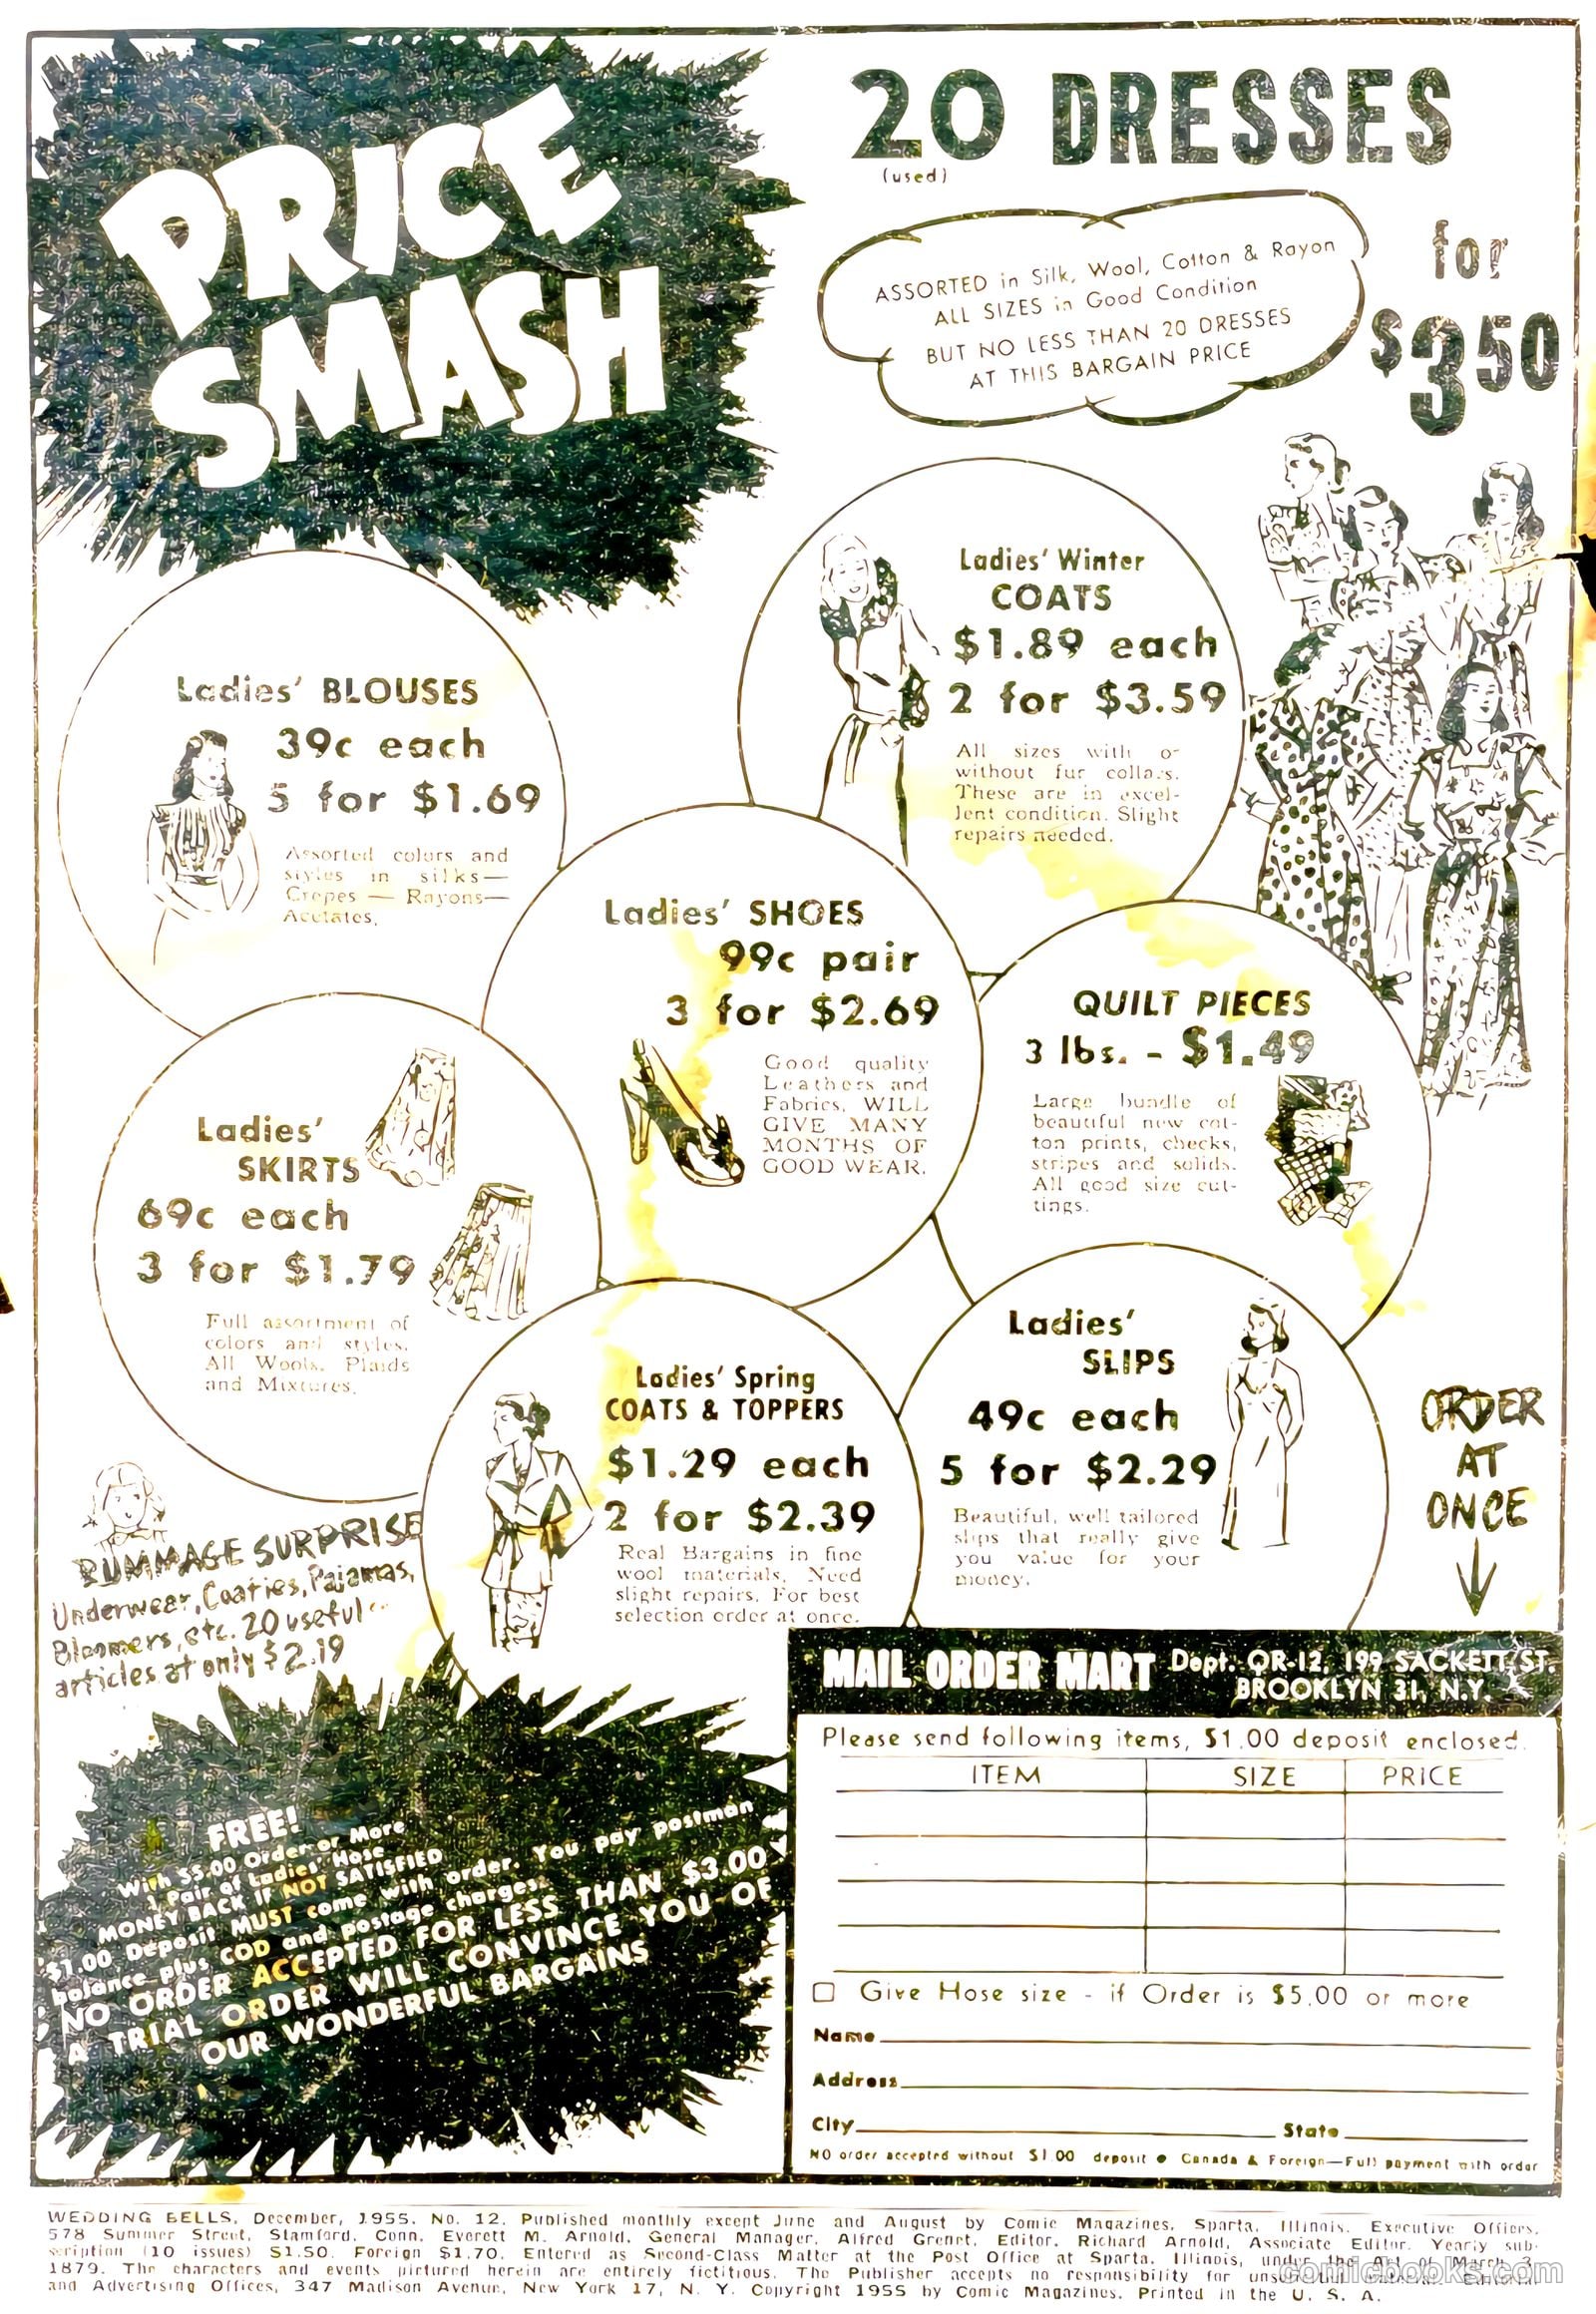 PRICE
SMASH
20 DRESSES
(used)
for
$3.50
ASSORTED in Silk, Wool, Cotton & Rayon
ALL SIZES in Good Condition
BUT NO LESS THAN 20 DRESSES
AT THIS BARGAIN PRICE
Ladies' Winter
COATS
$1.89 each
2 for $3.59
All sizes with or
without fur collars.
These are in excel-
lent condition. Slight
repairs needed.
Ladies' BLOUSES
39c each
5 for $1.69
Assorted colors and
styles in silks—
Crepes — Rayons—
Acetates.
Ladies' SHOES
99c pair
3 for $2.69
Good quality
Leathers and
Fabrics. WILL
GIVE MANY
MONTHS OF
GOOD WEAR.
QUILT PIECES
3 lbs. - $1.49
Large bundle of
beautiful new cot-
ton prints, checks,
stripes and solids.
All good size cut-
tings.
Ladies'
SKIRTS
69c each
3 for $1.79
Full assortment of
colors and styles.
All Wools. Plaids
and Mixtures.
Ladies' Spring
COATS & TOPPERS
$1.29 each
2 for $2.39
Real Bargains in fine
wool materials. Need
slight repairs. For best
selection order at once.
Ladies'
SLIPS
49c each
5 for $2.29
Beautiful, well tailored
slips that really give
you value for your
money.
ORDER
AT
ONCE
RUMMAGE SURPRISE
Underwear, Coaties, Pajamas,
Bloomers, etc. 20 useful
articles at only $2.19
FREE!
With $5.00 Order or More
1 Pair of Ladies' Hose
MONEY BACK IF NOT SATISFIED
$1.00 Deposit MUST come with order. You pay postman
balance plus COD and postage charges.
NO ORDER ACCEPTED FOR LESS THAN $3.00
A TRIAL ORDER WILL CONVINCE YOU OF
OUR WONDERFUL BARGAINS
MAIL ORDER MART Dept. QR-12, 199 SACKETT ST.
BROOKLYN 31, N.Y.
Please send following items, $1.00 deposit enclosed.
ITEM SIZE PRICE
Give Hose size - if Order is $5.00 or more
Name
Address
City State
NO order accepted without $1.00 deposit • Canada & Foreign—Full payment with order
WEDDING BELLS, December, 1955, No. 12. Published monthly except June and August by Comic Magazines, Sparta, Illinois. Executive Offices,
578 Summer Street, Stamford, Conn. Everett M. Arnold, General Manager, Alfred Grenet, Editor, Richard Arnold, Associate Editor. Yearly sub-
scription (10 issues) $1.50. Foreign $1.70. Entered as Second-Class Matter at the Post Office at Sparta, Illinois, under the Act of March 3,
1879. The characters and events pictured herein are entirely fictitious. The Publisher accepts no responsibility for unsolicited material. Editorial
and Advertising Offices, 347 Madison Avenue, New York 17, N. Y. Copyright 1955 by Comic Magazines. Printed in the U. S. A.
comicbooks.com